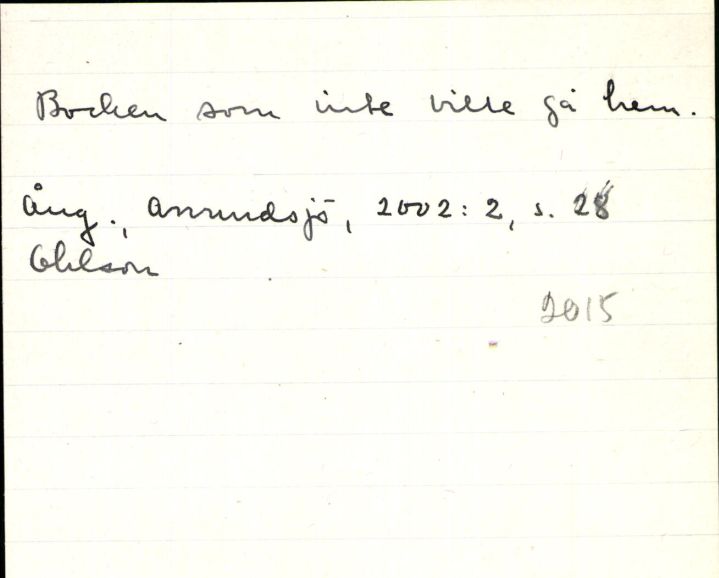 Bocken som inte ville gå hem.
Ång., Anundsjö, 2002: 2, s. 28
Ohlson
2015